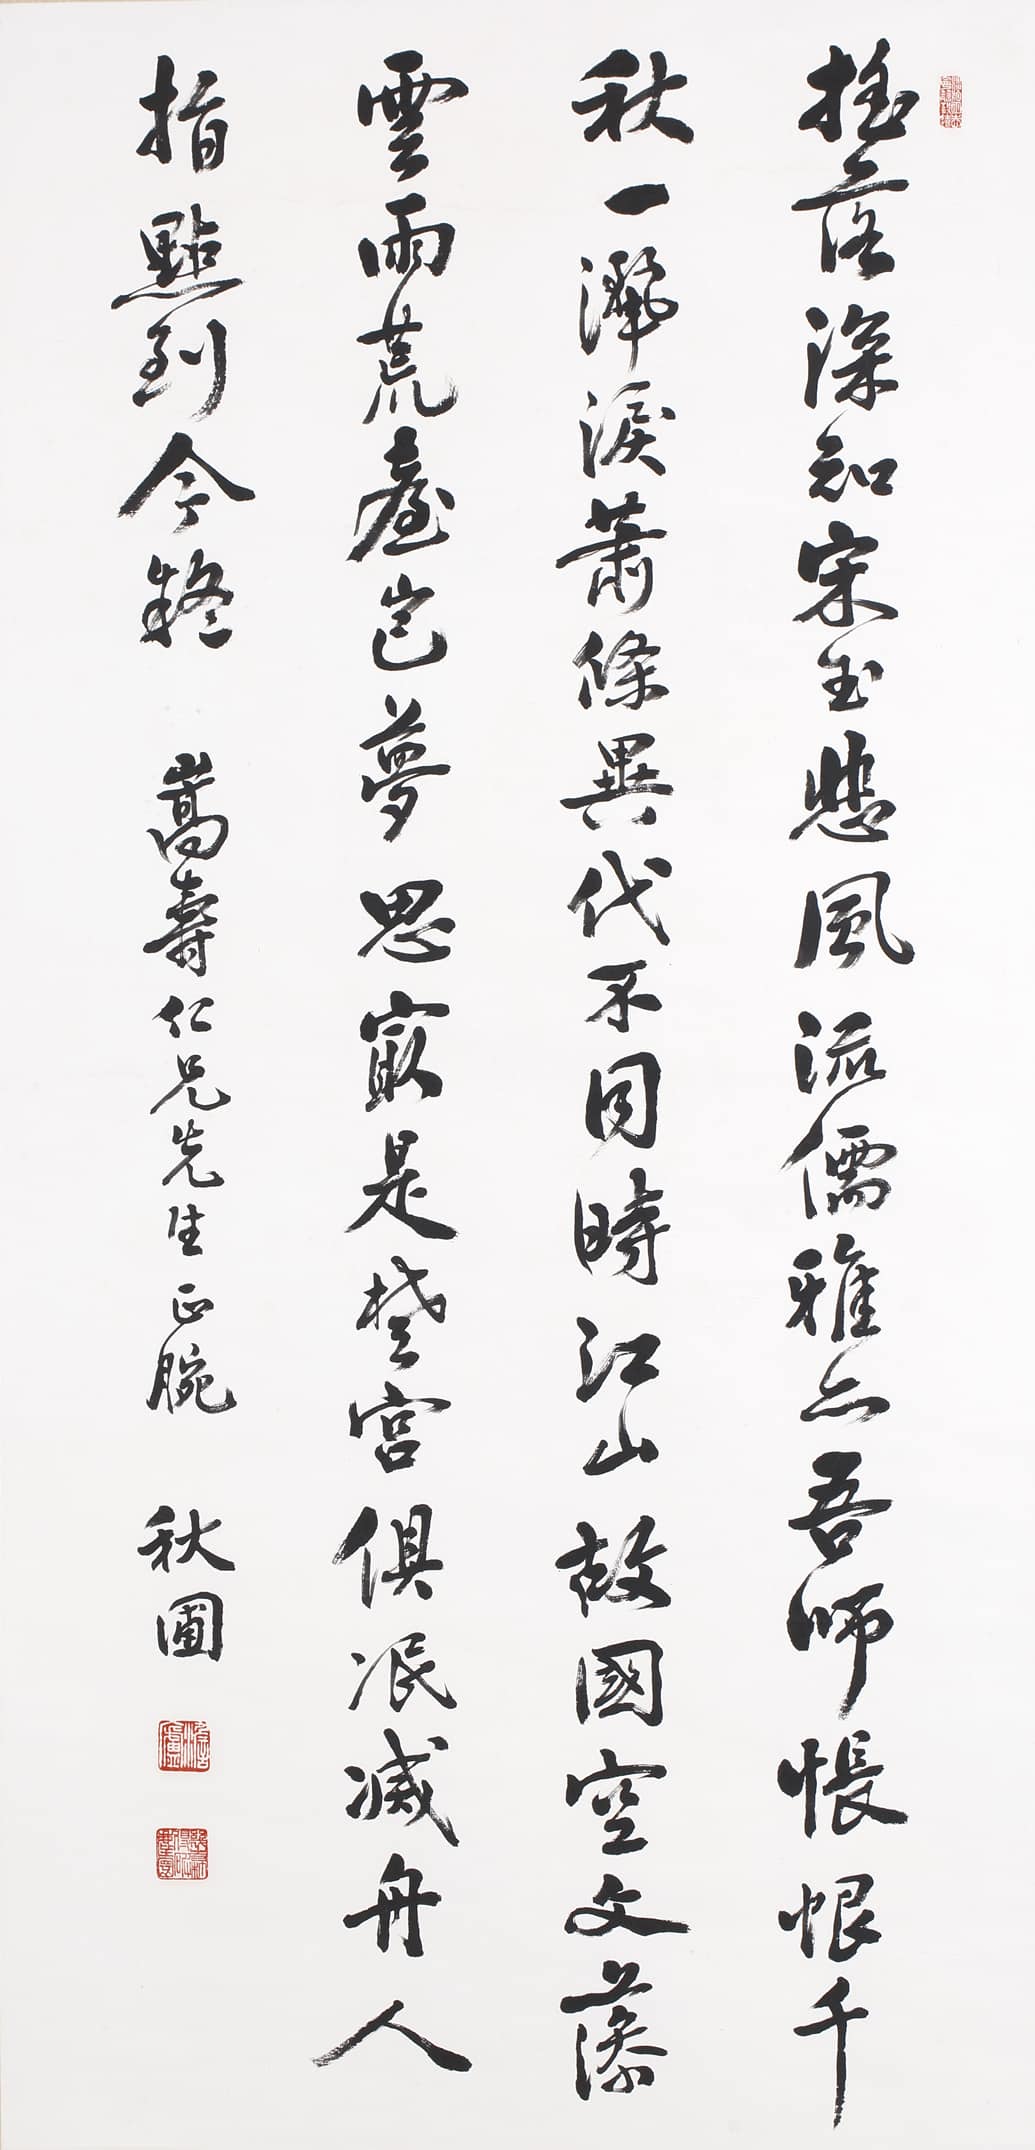 搖落深知宋玉悲風流儒雅亦吾師悵恨千
秋一灑淚蕭條異代不同時江山故國空文藻
雲雨荒臺豈夢思最是楚宮俱泯滅舟人
指點到今疑 嵩壽仁兄先生正腕 秋圃